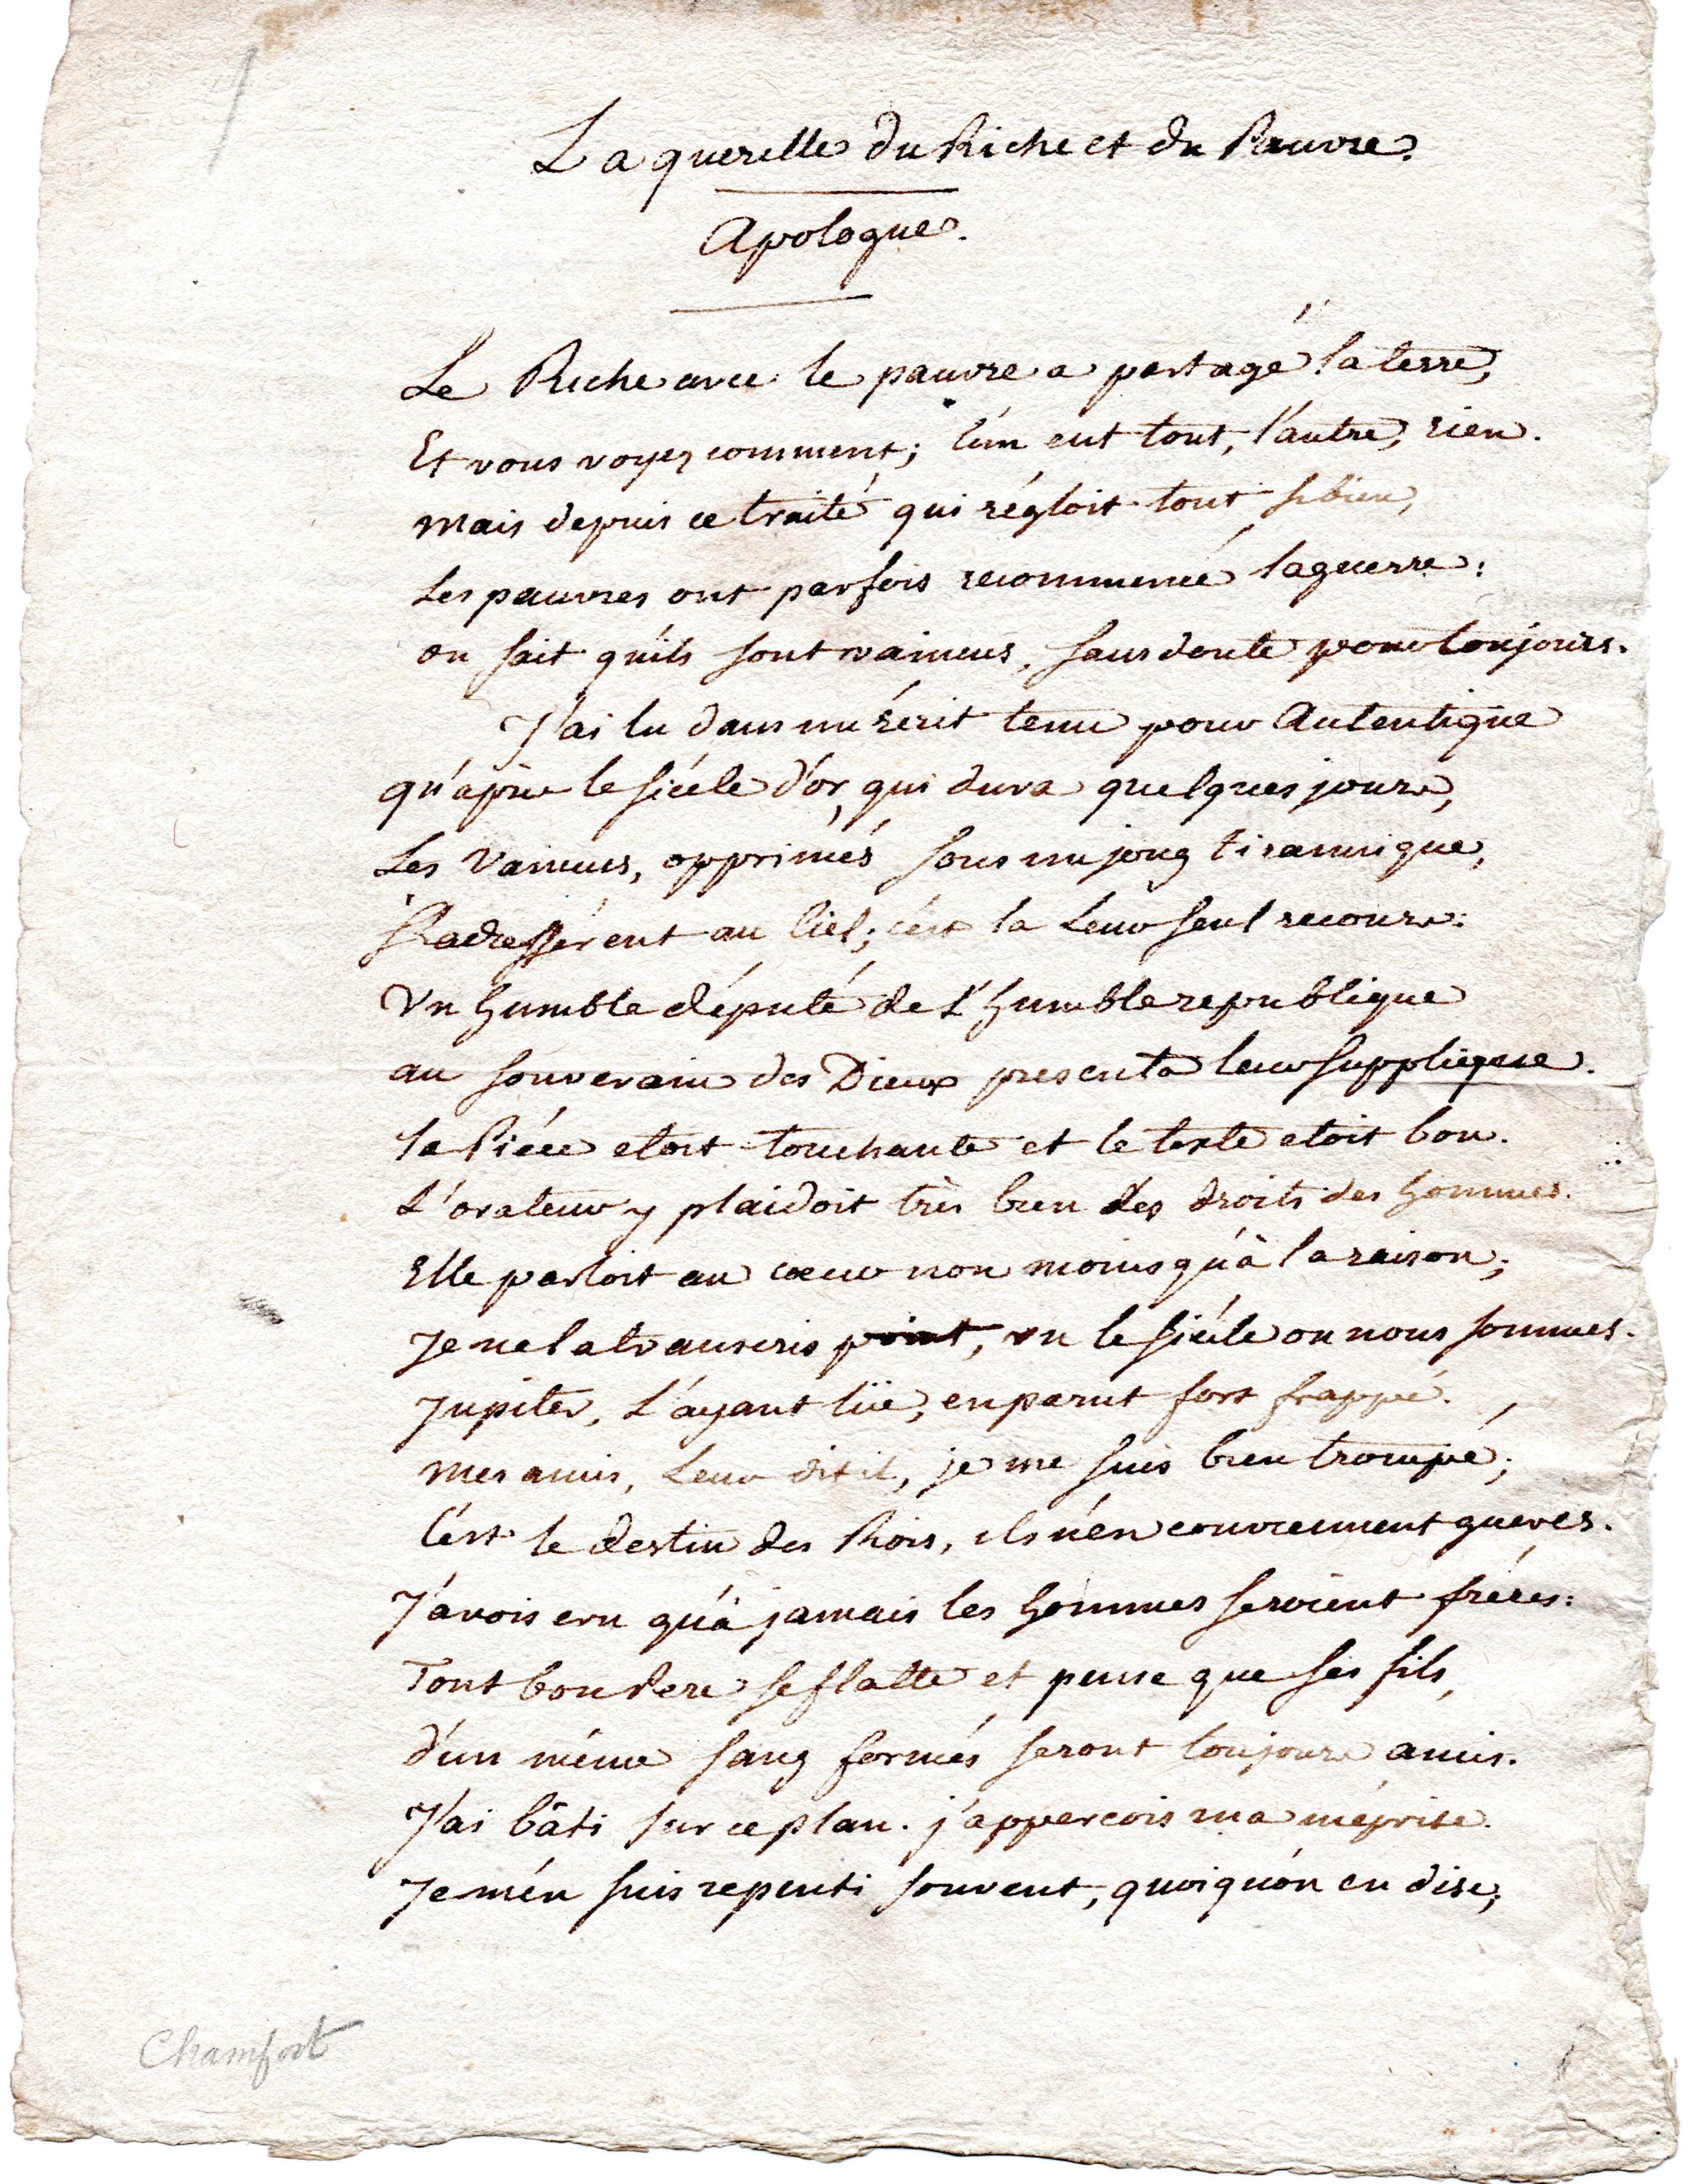 La querelle du Riche et du Pauvre.
Apologue.
Le Riche avec le pauvre a partagé la terre,
Et vous voyez comment; l'un eut tout, l'autre, rien.
Mais depuis ce traité qui régloit tout si bien,
Les pauvres ont parfois recommencé la guerre:
on sait qu'ils sont vaincus, sans doute pour toujours.
J'ai lu dans un écrit tenu pour Autentique
qu'après le siécle d'or, qui dura quelques jours,
Les Vaincus, opprimés sous un joug tirannique,
S'adressérent au Ciel; c'est la Leur seul recours:
Un humble député de L'humble republique
au souverain des Dieux presenta leur supplique.
la Piéce etoit touchante et le texte etoit bon.
L'orateur y plaidoit très bien les droits des hommes.
Elle parloit au coeur non moins qu'à la raison;
Je ne la transcris point, vu le siécle ou nous sommes.
Jupiter, L'ayant lüe, en parut fort frappé.
Mes amis, Leur dit il, je me suis bien trompé;
C'est le destin des Rois, ils n'en conviennent gueres.
J'avois cru qu'à jamais les hommes seroient fréres:
Tout bon Pere se flatte et pense que ses fils,
d'un même sang formés seront toujours amis.
J'ai bâti sur ce plan. j'appercois ma méprise.
Je m'en suis repenti souvent, quoiqu'on en dise,
Chamfort